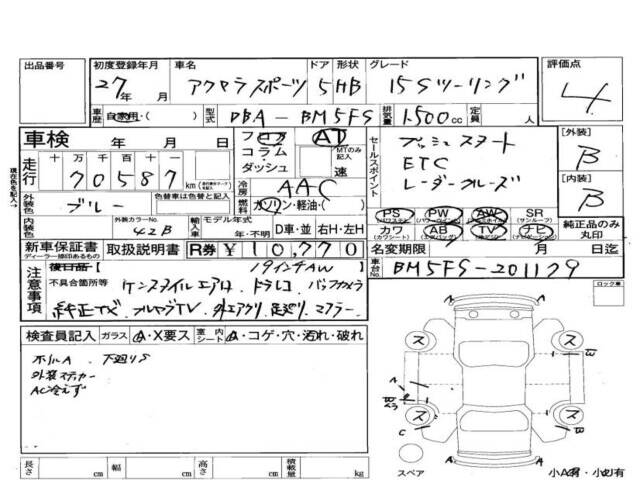 出品番号 初度登録年月 車名 ドア 形状 グレード 評価点
27年 月 アクセラスポーツ 5 HB 15Sツーリング 4
車歴 自家用・( ) 型式 DBA-BM5FS 排気量 1500cc 定員 人
車検 年 月 日 フロア AT セールスポイント プッシュスタート [外装]
コラム・ダッシュ MTのみ記入 速 ETC B
走行 十万千百十一 70587 km 冷房 AAC レーダークルーズ [内装]
現在色を記入→ 外装色 ブルー 色替車は色替と記入 燃料 ガソリン・軽油・( ) B
PS PW AW SR (サンルーフ)
内装色 外装カラーNo. 42B 輸入車 モデル年式 年・不明 D車・並 右H・左H カワ (カワシート) AB (エアバッグ) TV ナビ 純正品のみ丸印
新車保証書 ディーラー捺印あるもの 取扱説明書 R券 ¥10,770 名変期限 月 日迄
注意事項 後日品 19インチAW 車台No. BM5FS-201179
不具合箇所等 ケンスタイルエアロ ドラレコ バックカメラ ロック車
純正ナビ フルセグTV 外エアクリ 足廻り マフラー
検査員記入 ガラス A・X要ス 室内シート A・コゲ・穴・汚れ・破れ
ホイルA 下廻りS
外装ステッカー
AC冷えず
ス ス
ス ス
A
C
A A
スペア 小A有・小凹有
長さ cm 幅 cm 高さ cm 積載量 kg